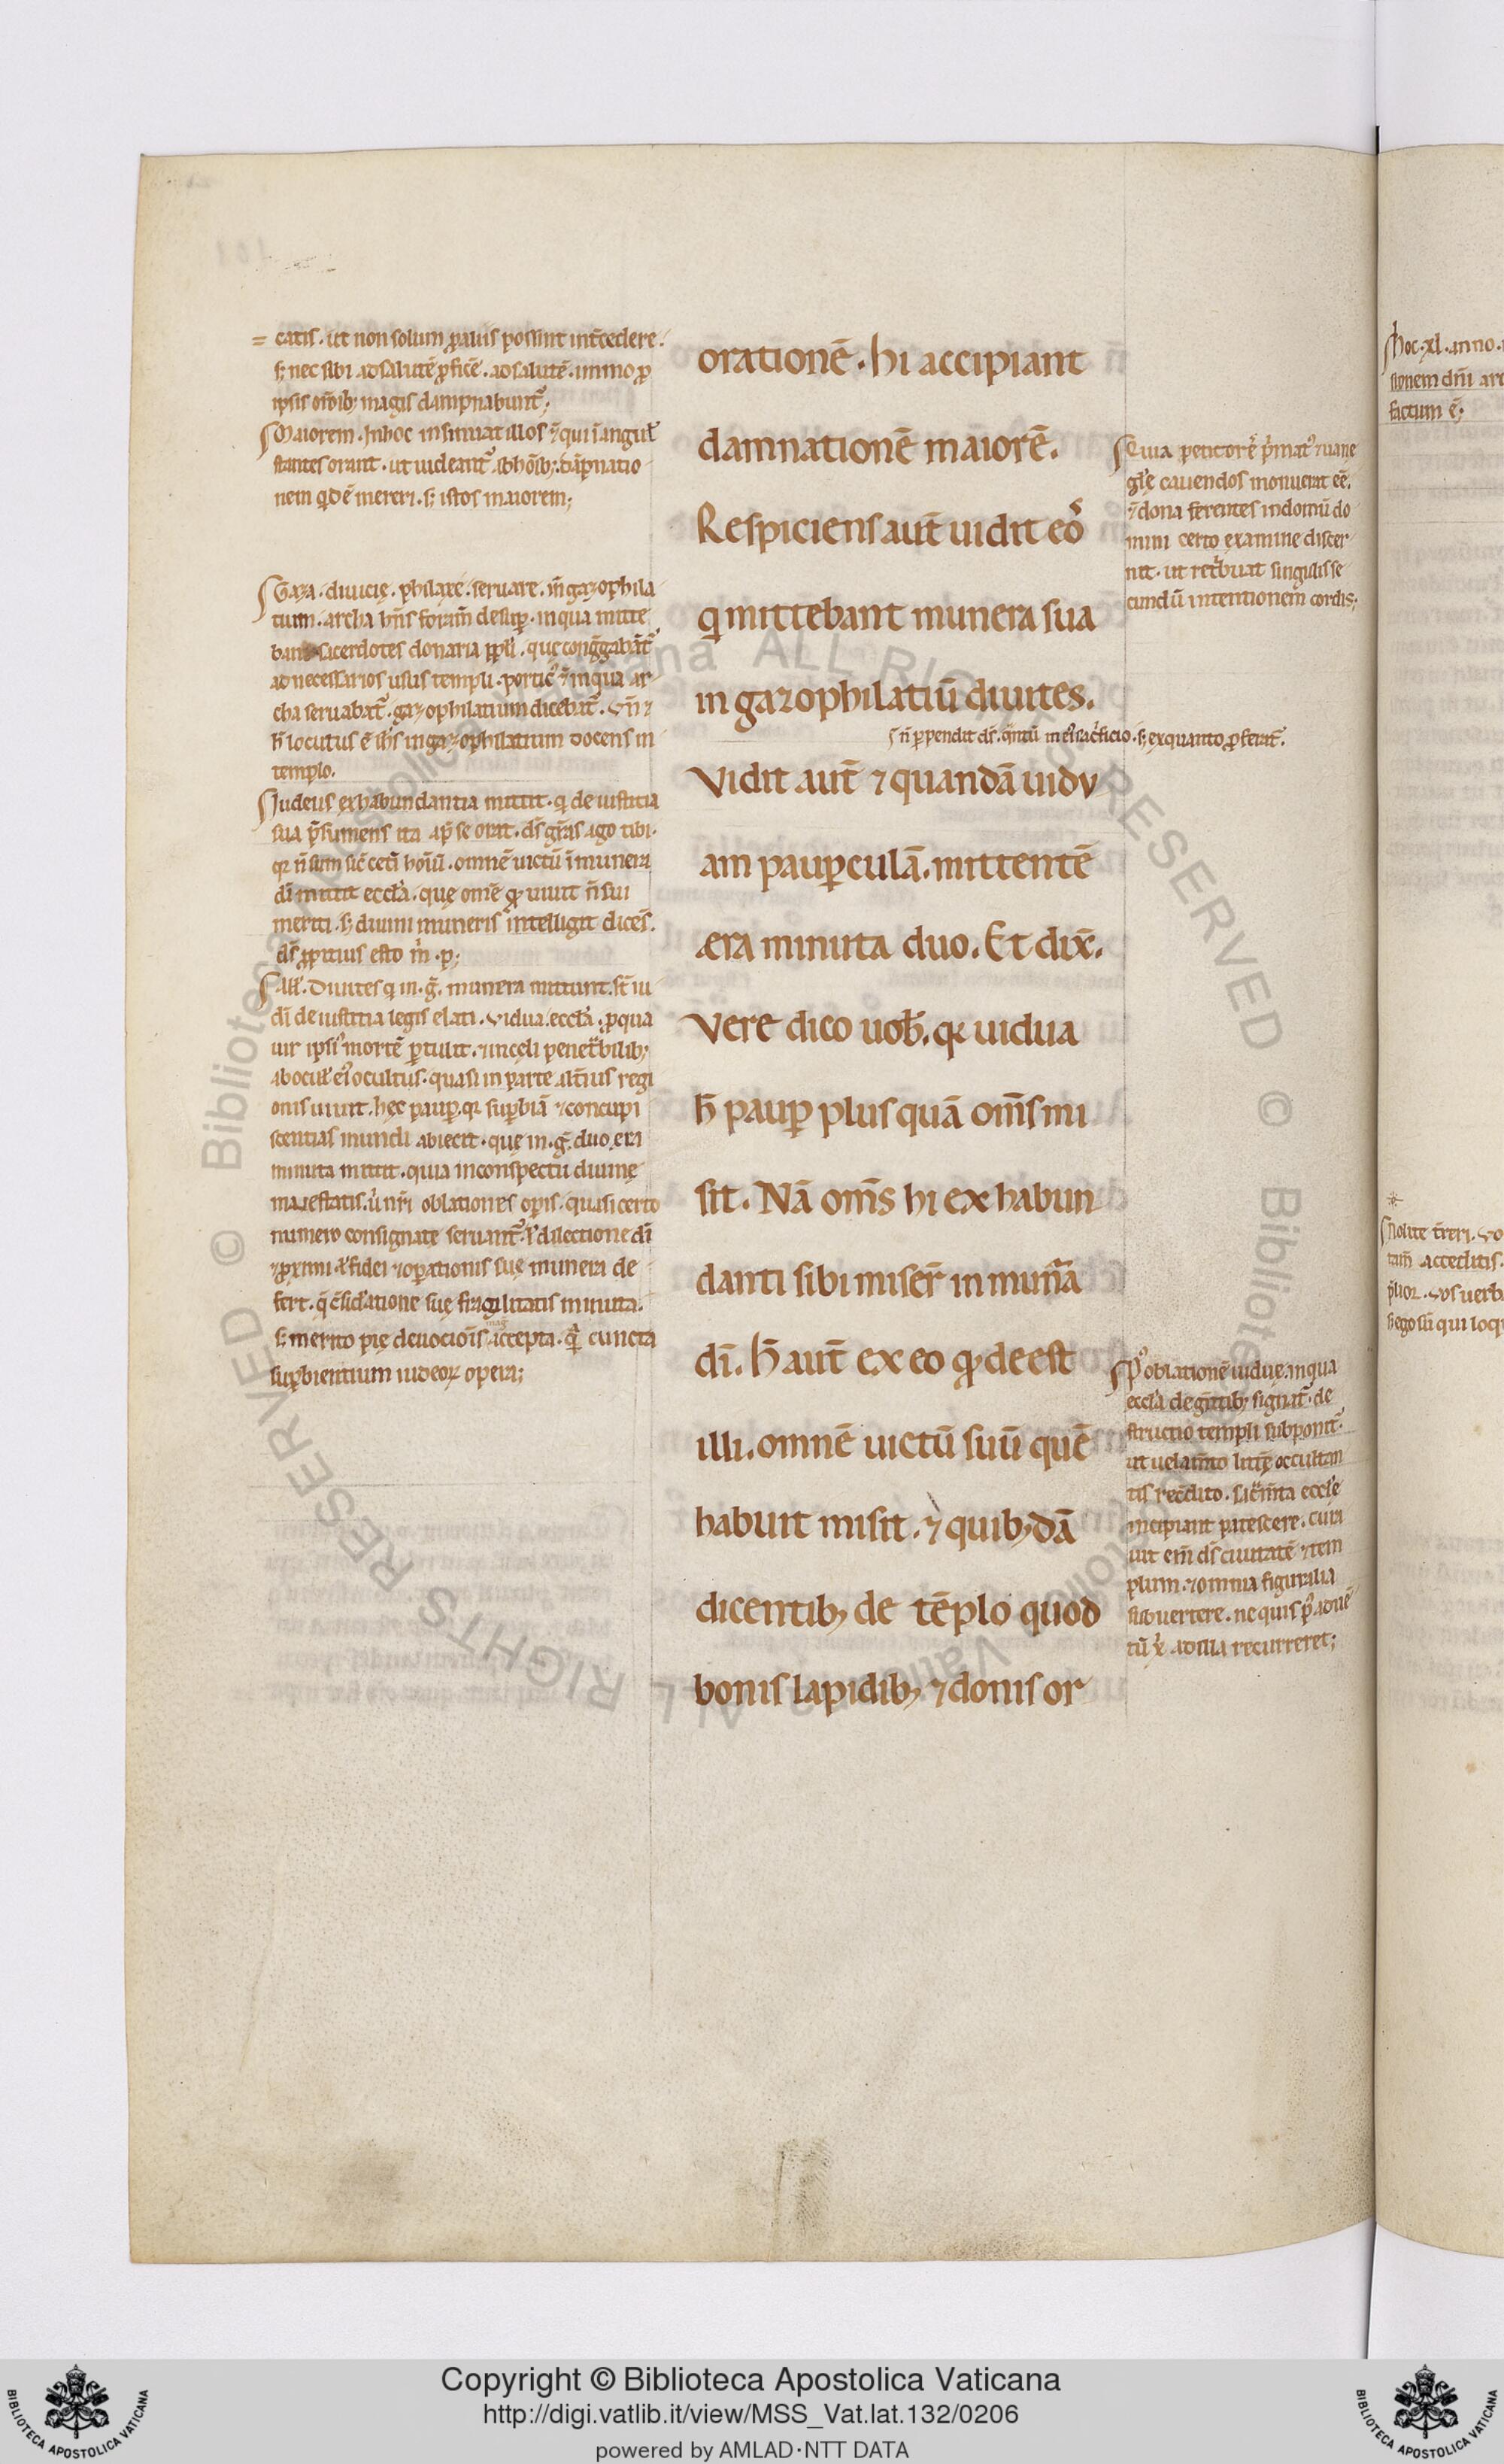 = catis . ut non solum ꝓ aliis possint int̃cedere .
s; nec sibi ad salutẽ ꝓficẽ . ad salutẽ . immo ꝓ
ipsis om̃ib; magis dampnabunt᷑;
Maiorem . In hoc insinuat illos ⁊ qui ĩ angul̃
stantes orant . ut uideant᷑ ab hoĩb; . dãpnatio
nem qͥdẽ mereri . s; istos maiorem;
Gaza . diuicię . philaxe . seruare . iñ gazophila
tium . archa hñs foram̃ desuꝑ . in qua mitte
bant sacerdotes donaria ppl̃i . quę cong̃gabãt᷑
ad necessarios usus templi . porticꝰ ⁊ in qua ar
cha seruabat᷑ . gazophilatium dicebat᷑ . Vñ ⁊
h̃ locutus ẽ ihs̃ in gazophilatium docens in
templo .
Judeus ex habundantia mittit . qͥ de iustitia
sua p̃sumens ita ap̃ se orat . ds̃ gr̃as ago tibi .
qꝛ ñ sum sic̃ cet̃i hoĩũ . omnẽ uictũ ĩ munera
dĩ mittit eccl̃a . quę om̃e ꝙ uiuit ñ sui
meriti . s; diuini muneris intelligit dicẽs .
ds̃ ꝓpitius esto m̃ . p;
All̃ . Diuites qͥ in . g̃ . munera mittunt . st̃ iu
dĩ de iustitia legis elati . Vidua . eccl̃a . ꝓ qua
uir ipsiꝰ mortẽ ꝑtulit . ⁊ in celi penet̃bilib;
ab ocul̃ eiꝰ ocultus . quasi in parte alt̃ius regi
onis uiuit . hęc pauꝑ . qꝛ suꝑbiã ⁊ concupi
scentias mundi abiecit . quę in . g̃ . duo era
minuta mittit . quia in conspectu diuinę
maiestatis . ũ nr̃i oblationes oꝑis . quasi certo
numero consignate seruant᷑ . ł dilectione dĩ
⁊ ꝓximi . ł fidei ⁊ oꝑationis suę munera de
fert . q̃ c̃sid̃atione suę fragilitatis minuta .
s; merito pię deuocioĩs accepta . qͣ̃ cuncta
suꝑbientium iudeoꝝ opera;
orationẽ . hi accipiant
damnationẽ maiorẽ .
Respiciens aut̃ uidit eoˢ
qͥ mittebant munera sua
in gazophilatiũ diuites .
ñ ꝑpendit ds̃ . qͣntũ in eiꝰ sac̃ficio . s; ex quanto ꝓferat᷑ .
Vidit aut̃ ⁊ quandã uidu
am pauꝑculã . mittentẽ
æra minuta duo . Et dix̃ .
Vere dico uob̃ . qꝛ uidua
h̃ pauꝑ plus quã om̃s mi
sit . Nã om̃s hi ex habun
danti sibi miser̃ in mun̄a
dĩ . h̃ aut̃ ex eo ꝙ deest
illi . omnẽ uictũ suũ quẽ
habuit misit . ⁊ quib;dã
dicentib; de tẽplo quod
bonis lapidib; ⁊ donis or
Quia petitorẽ p̃matꝰ ⁊ uanę
gl̃ę cauendos monuerat eẽ .
⁊ dona ferentes in domũ do
mini certo examine discer
nit . ut ret̃buat singulis se
cundũ intentionem cordis;
Pꝰ oblationẽ uiduę . in qua
eccl̃a de gentib; signat᷑ . de
structio templi subponit᷑ .
ut uelam̃to litterę occultan
tis recedito . sac̃m̃ta eccl̃ę
incipiant patescere . cura
uit em̃ ds̃ ciuitatẽ ⁊ tem
plum . ⁊ omnia figuralia
subuertere . ne quis pꝰ aduẽ
tũ xp̃i ad illa recurreret;
Hoc . xl . anno .
sionem dñi
factum ẽ;
Nolite t̃reri .
tam̃ acceditis .
p̃lior . Vos uerb
s; ego sũ qui loq
© Biblioteca Apostolica Vaticana ALL RIGHTS RESERVED
Copyright © Biblioteca Apostolica Vaticana
http://digi.vatlib.it/view/MSS_Vat.lat.132/0206
powered by AMLAD·NTT DATA
BIBLIOTECA APOSTOLICA VATICANA
BIBLIOTECA APOSTOLICA VATICANA